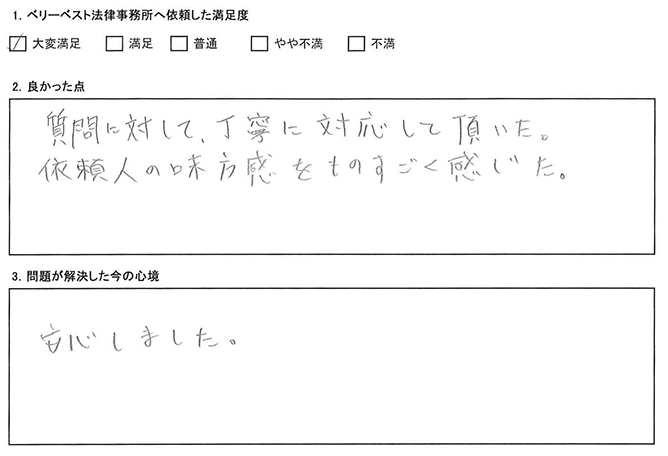 1. ベリーベスト法律事務所へ依頼した満足度
大変満足 満足 普通 やや不満 不満
2. 良かった点
質問に対して、丁寧に対応して頂いた。
依頼人の味方感をものすごく感じた。
3. 問題が解決した今の心境
安心しました。